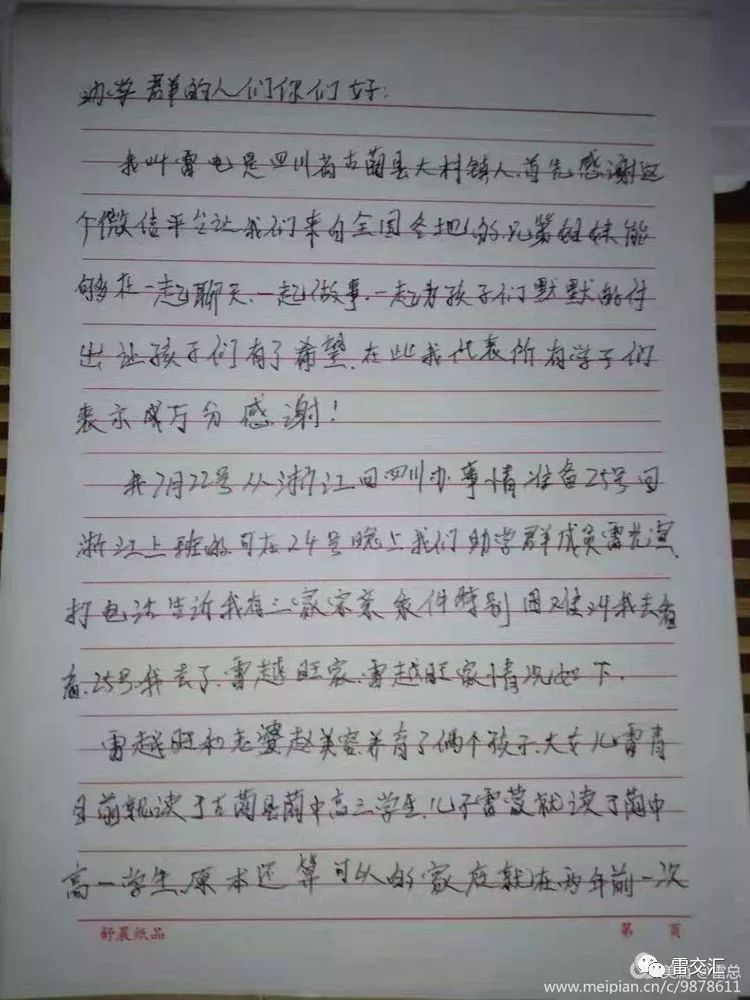 助学群的人们你们好:
我叫雷电是四川省古蔺县大村镇人.首先感谢这
个微信平台让我们来自全国各地的兄弟姐妹能
够在一起聊天.一起做事.一起为孩子们默默的付
出让孩子们有了希望.在此我代表所有学子们
表示成万分感谢!
我7月22号从浙江回四川办事情准备25号回
浙江上班的可在24号晚上我们助学群成员雷光
打电话告诉我有三家宗亲条件特别困难叫我去看
看.25号我去了雷越旺家.雷越旺家情况如下.
雷越旺和老婆赵美容养育了俩个孩子.大女儿雷青
目前就读于古蔺县蔺中高三学生.儿子雷蒙就读于蔺中
高一学生.原本还算可以的家庭就在两年前一次
舒晨纸品
第 页
雷交汇
美篇 @雷总
www.meipian.cn/c/9878611